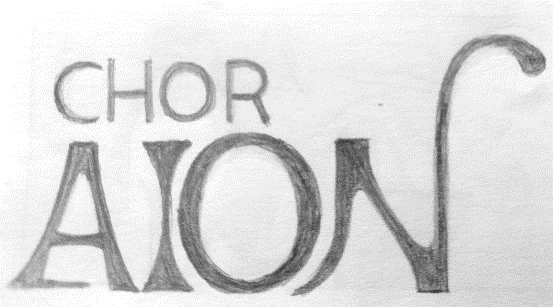 CHOR
AION